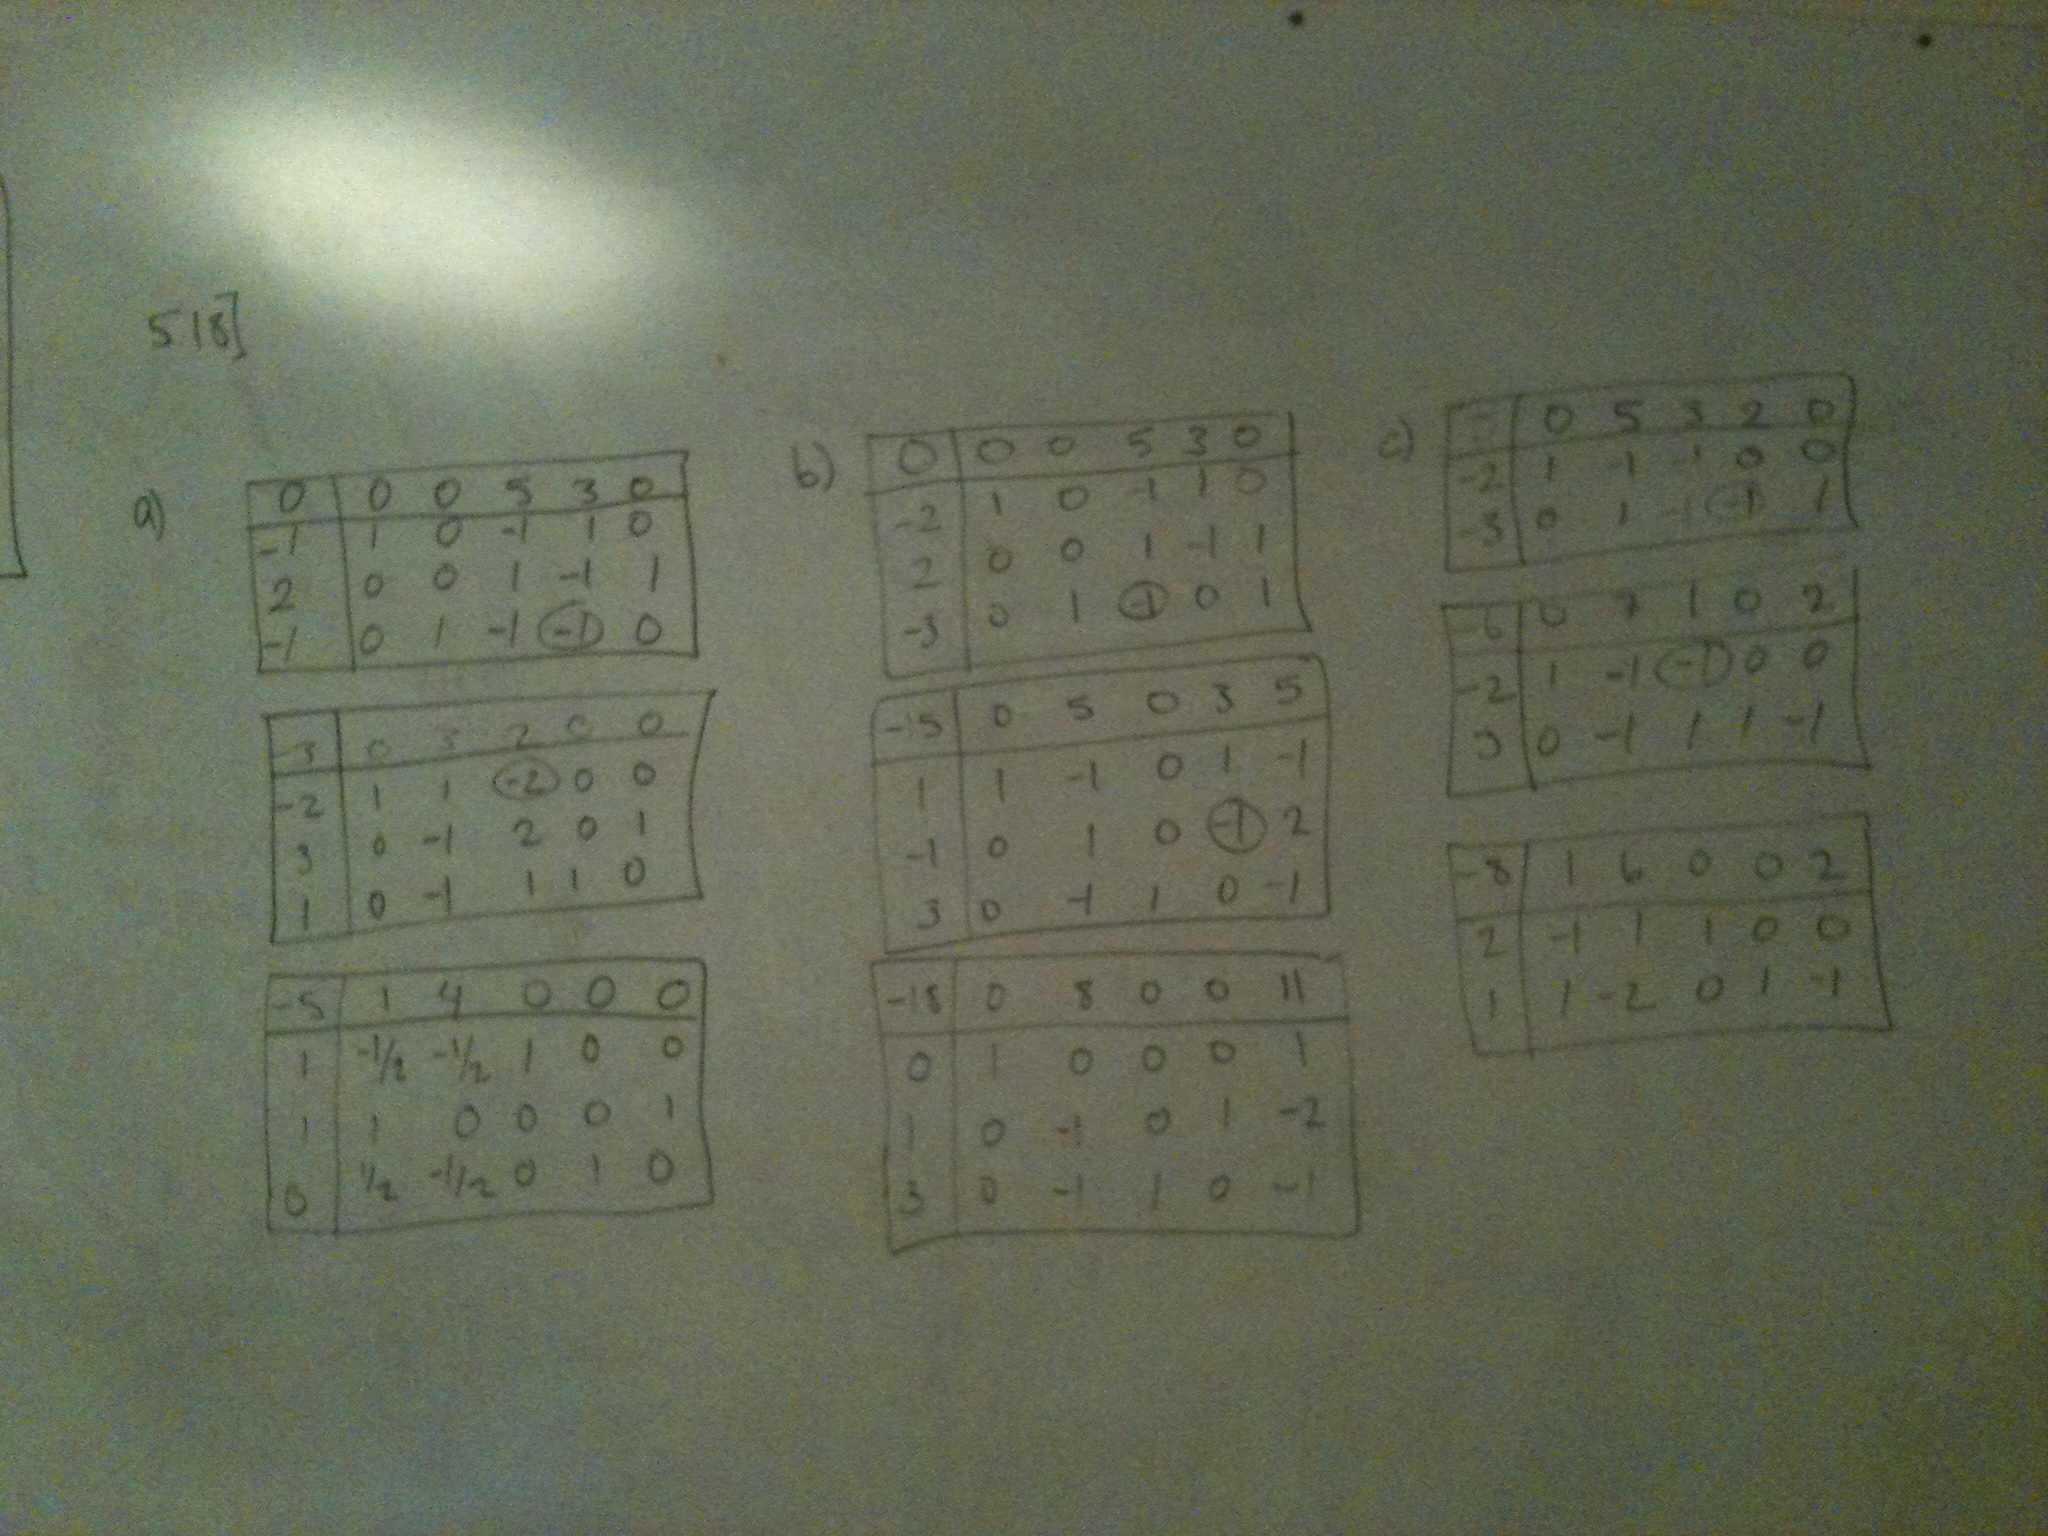 5.18]
a)
0 0 0 5 3 0
-1 1 0 -1 1 0
2 0 0 1 -1 1
-1 0 1 -1 -1 0
-3 0 3 2 0 0
-2 1 1 -2 0 0
3 0 -1 2 0 1
1 0 -1 1 1 0
-5 1 4 0 0 0
1 -1/2 -1/2 1 0 0
1 1 0 0 0 1
0 1/2 -1/2 0 1 0
b)
0 0 0 5 3 0
-2 1 0 -1 1 0
2 0 0 1 -1 1
-3 0 1 -1 0 1
-15 0 5 0 3 5
1 1 -1 0 1 -1
-1 0 1 0 -1 2
3 0 -1 1 0 -1
-18 0 8 0 0 11
0 1 0 0 0 1
1 0 -1 0 1 -2
3 0 -1 1 0 -1
c)
0 5 3 2 0
-2 1 -1 -1 0 0
-3 0 1 -1 -1 1
-6 0 7 1 0 2
-2 1 -1 -1 0 0
3 0 -1 1 1 -1
-8 1 6 0 0 2
2 -1 1 1 0 0
1 1 -2 0 1 -1